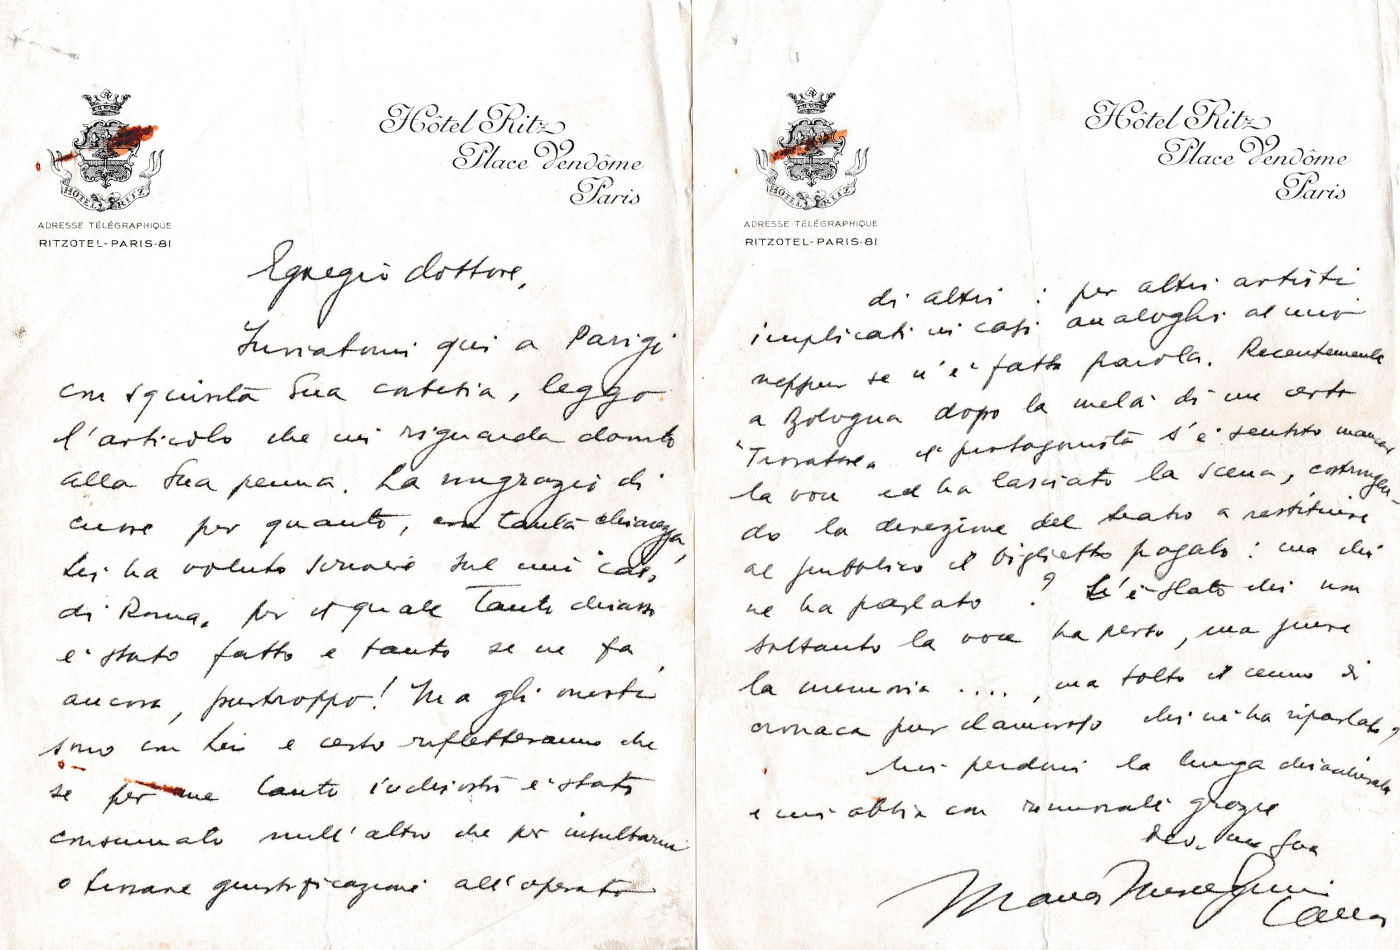 HOTEL RITZ
ADRESSE TÉLÉGRAPHIQUE
RITZOTEL-PARIS-81
Hôtel Ritz
Place Vendôme
Paris
Egregio dottore,
Inviatomi qui a Parigi
con squisita Sua cortesia, leggo
l'articolo che mi riguarda dovuto
alla Sua penna. La ringrazio di
cuore per quanto, con tanta chiarezza,
Lei ha voluto scrivere sul mio caso
di Roma, per il quale tanto chiasso
è stato fatto e tanto se ne fa,
ancora, purtroppo! Ma gli onesti
sono con Lei e certo rifletteranno che
se per me tanto inchiostro è stato
consumato null'altro che per insultarmi
o trovare giustificazioni all'operato
HOTEL RITZ
ADRESSE TÉLÉGRAPHIQUE
RITZOTEL-PARIS-81
Hôtel Ritz
Place Vendôme
Paris
di altri; per altri artisti
implicati in casi analoghi al mio
neppur se n'è fatto parola. Recentemente
a Bologna dopo la metà di un certo
"Trovatore" il protagonista s'è sentito mancar
la voce ed ha lasciato la scena, costringen-
do la direzione del teatro a restituire
al pubblico il biglietto pagato: ma chi
ne ha parlato? C'è stato chi non
soltanto la voce ha perso, ma pure
la memoria ...., ma tolto il cenno di
cronaca pur clamoroso chi ne ha riparlato?
Mi perdoni la lunga chiacchierata
e mi abbia con rinnovate grazie
dev.ma Sua
Maria Meneghini
Callas